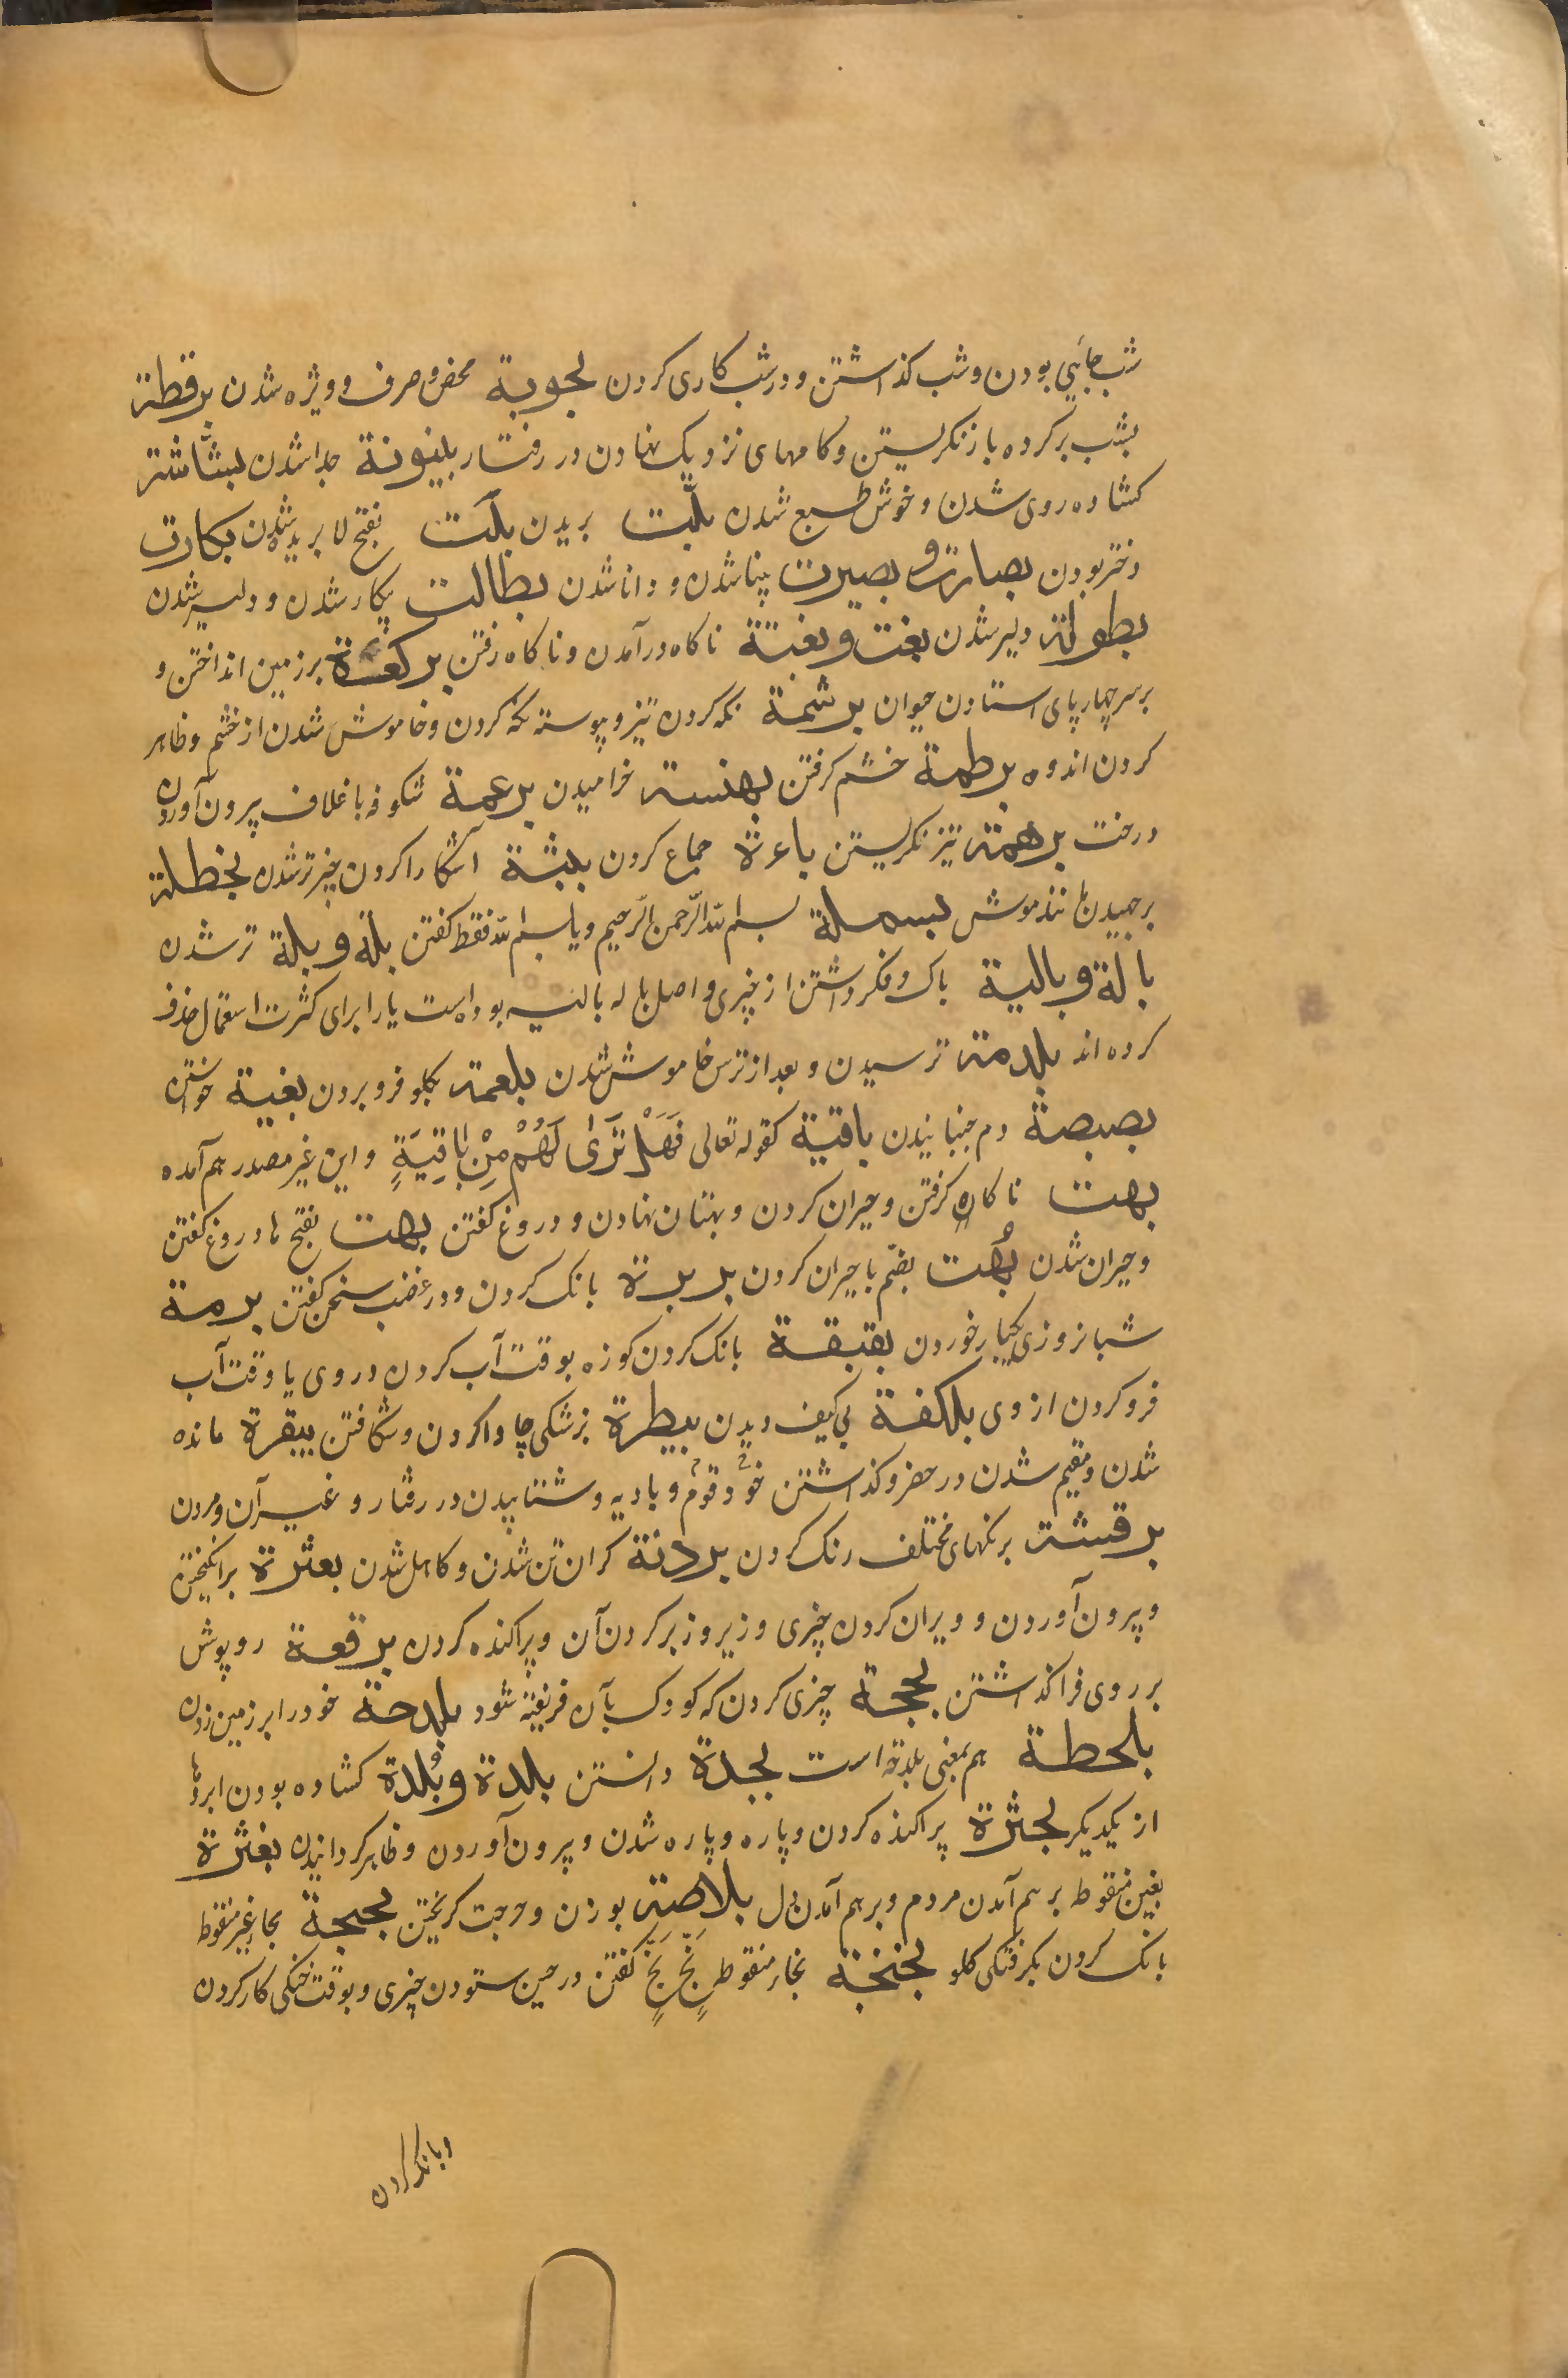 شب جائی بودن و شب کذاشتن و در شب کاری کردن بحوبة محض و صرف و ویژه شدن برقطة
بشب برکرده باز نکریستن و کامهای نزدیک نهادن در رفتار بینونة جدا شدن بشاشة
کشاده روی شدن و خوش طبع شدن بلت بریدن بلت بفتح لا بریده شدن بکارت
دختر بودن بصارت و بصیرت بینا شدن و دانا شدن بطالت بیکار شدن و دلیر شدن
بطولة دلیر شدن بغت و بغتة ناکاه درآمدن و ناکاه رفتن برکعة بر زمین انداختن و
بر سر چهار پای استادن حیوان برشمة نکه کردن تیز و پیوسته نکه کردن و خاموش شدن از خشم و ظاهر
کردن اندوه برطمة خشم کرفتن بهنسة خرامیدن برعمة شکوفه با غلاف بیرون آوردن
درخت برهمة تیز نکریستن باءة جماع کردن بثة آشکارا کردن چیز تر شدن بحظلة
برجهیدن مانند موش بسملة بسم الله الرّحمن الرّحیم و یا بسم الله فقط کفتن بلة و بلة تر شدن
بالة و بالیة باک و فکر داشتن از چیزی و اصل باله بالیه بوده است یا را برای کثرت استعمال حذف
کرده‌اند بلدمة ترسیدن و بعد از ترس خاموش شدن بلعمة بکلو فرو بردن بغیة خواستن
بصبصة دم جنبانیدن باقیة کقوله تعالی فَهَلْ تَرَىٰ لَهُمْ مِنْ بَاقِيَةٍ و این غیر مصدر هم آمده
بهت ناکاه کرفتن و حیران کردن و بهتان نهادن و دروغ کفتن بهت بفتح ها دروغ کفتن
و حیران شدن بُهت بضّم با حیران کردن بربرة بانک کردن و در غضب سخن کفتن برمة
شبانروزی یکبار خوردن بقبقة بانک کردن کوزه بوقت آب کردن در وی یا وقت آب
فرو کردن از وی بلکفة بی کیف دیدن بیطرة بزشکی چاروا کردن و شکافتن بیقرة مانده
شدن و مقیم شدن در حضر و کذاشتن خود قوم و بادیه و شتابیدن در رفتار و غیر آن و مردن
برقشة برنکهای مختلف رنک کردن بردنة کران تن شدن و کاهل شدن بعثرة برانکیختن
و بیرون آوردن و ویران کردن چیزی و زیر و زبر کردن آن و پراکنده کردن برقعة روپوش
بر روی فرا کذاشتن بججة چیزی کردن که کودک بآن فریفته شود بلدحة خود را بر زمین زدن
بلحطة هم بمعنی بلدحة است بجدة دانستن بلدة و بُلدة کشاده بودن ابروها
از یکدیکر بحثرة پراکنده کردن و پاره و پاره شدن و بیرون آوردن و ظاهر کردانیدن بغثرة
بغین منقوط بر هم آمدن مردم و برهم آمدن دل بلاصة بوزن دحرجت کریختن بحبحة بحاء غیر منقوط
بانک کردن بکرفتکی کلو بخبخة بخاء منقوط بَخٍّ بَخٍّ کفتن در حین ستودن چیزی و بوقت خنکی کار کردن
و بانک کردن